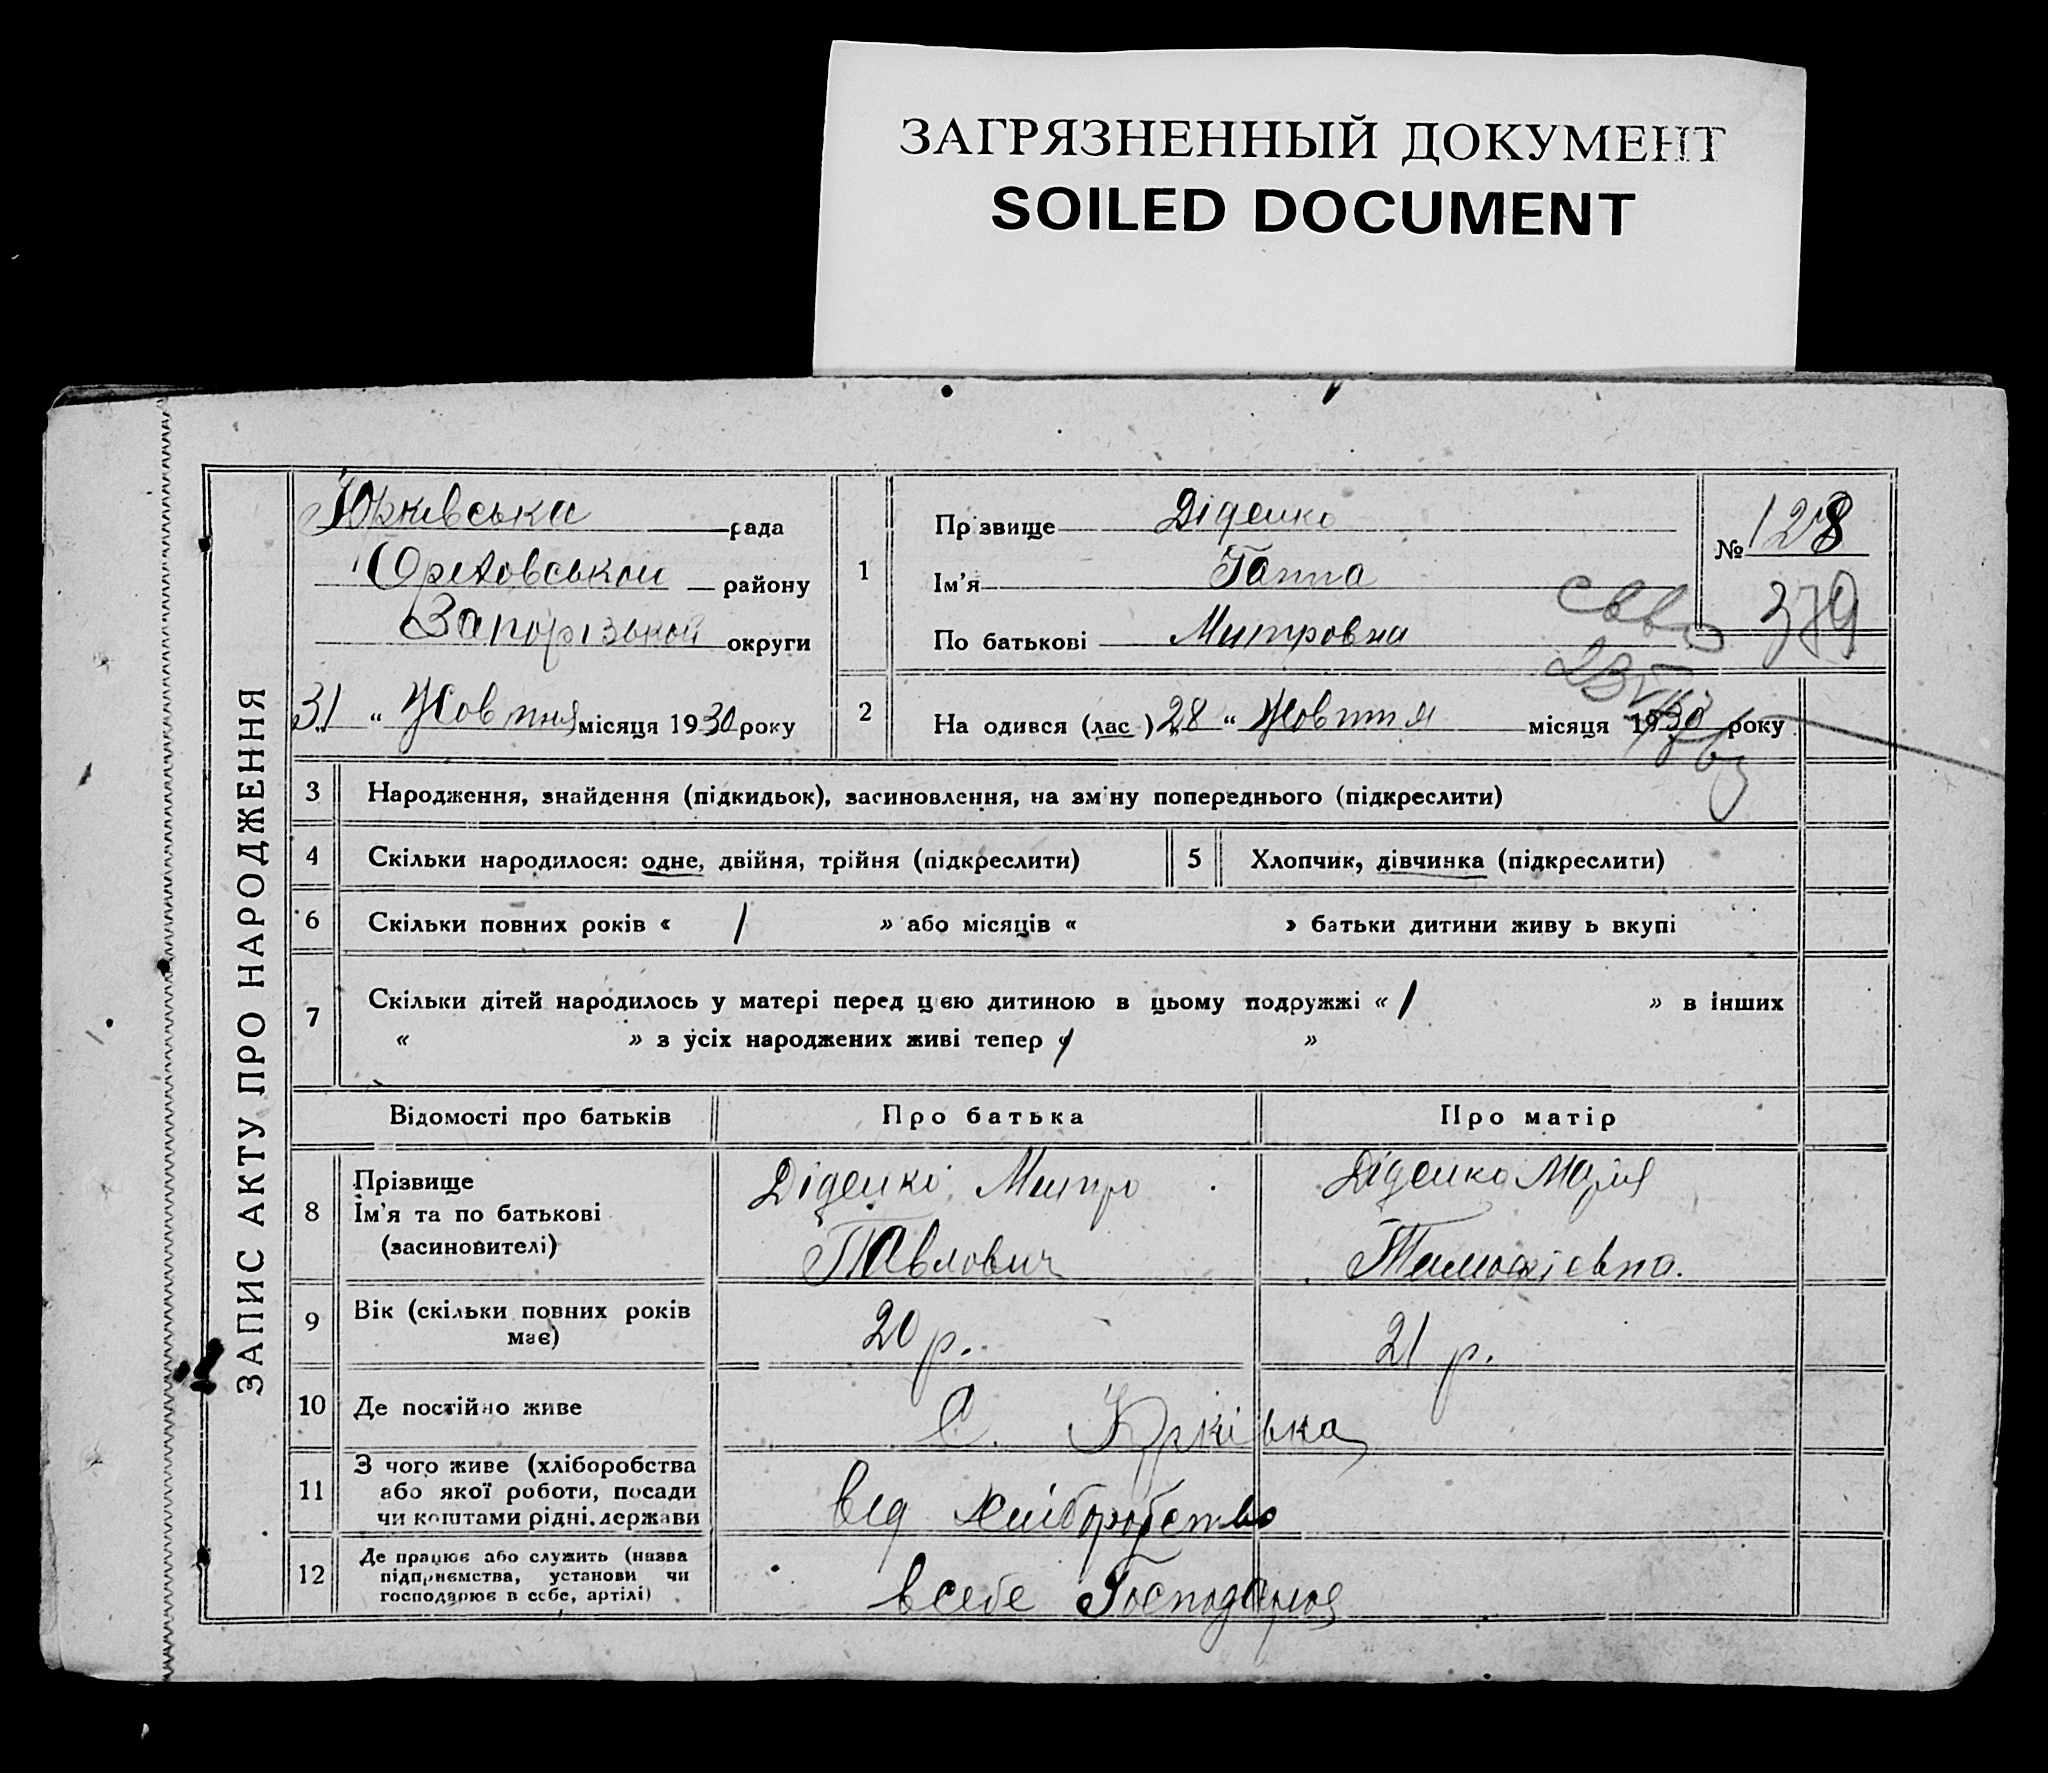 ЗАГРЯЗНЕННЫЙ ДОКУМЕНТ
SOILED DOCUMENT
ЗАПИС АКТУ ПРО НАРОДЖЕННЯ
Юрківська рада
Оріховськой району
Запорізькой округи
31 " Жовтня місяця 1930 року
1
Прізвище Діденко
Ім'я Ганна
По батькові Митровна
№ 128
379
2
На одився (лас ) 28 " Жовтня місяця 1930 року
3 Народження, знайдення (підкидьок), засиновлення, на зміну попереднього (підкреслити)
4 Скільки народилося: одне, двійня, трійня (підкреслити)
5 Хлопчик, дівчинка (підкреслити)
6 Скільки повних років « 1 » або місяців « » батьки дитини живу ь вкупі
7 Скільки дітей народилось у матері перед цією дитиною в цьому подружжі « 1 » в інших
« » з усіх народжених живі тепер « 1 »
Відомості про батьків Про батька Про матір
8 Прізвище
Ім'я та по батькові
(засиновителі)
Діденко Митро
Павлович
Діденко Марія
Тимофієвна.
9 Вік (скільки повних років
має)
20 р. 21 р.
10 Де постійно живе С. Юрківка
11 З чого живе (хліборобства
або якої роботи, посади
чи коштами рідні, держави
від хліборобство
12 Де працює або служить (назва
підприємства, установи чи
господарює в себе, артілі)
в себе Господарюя